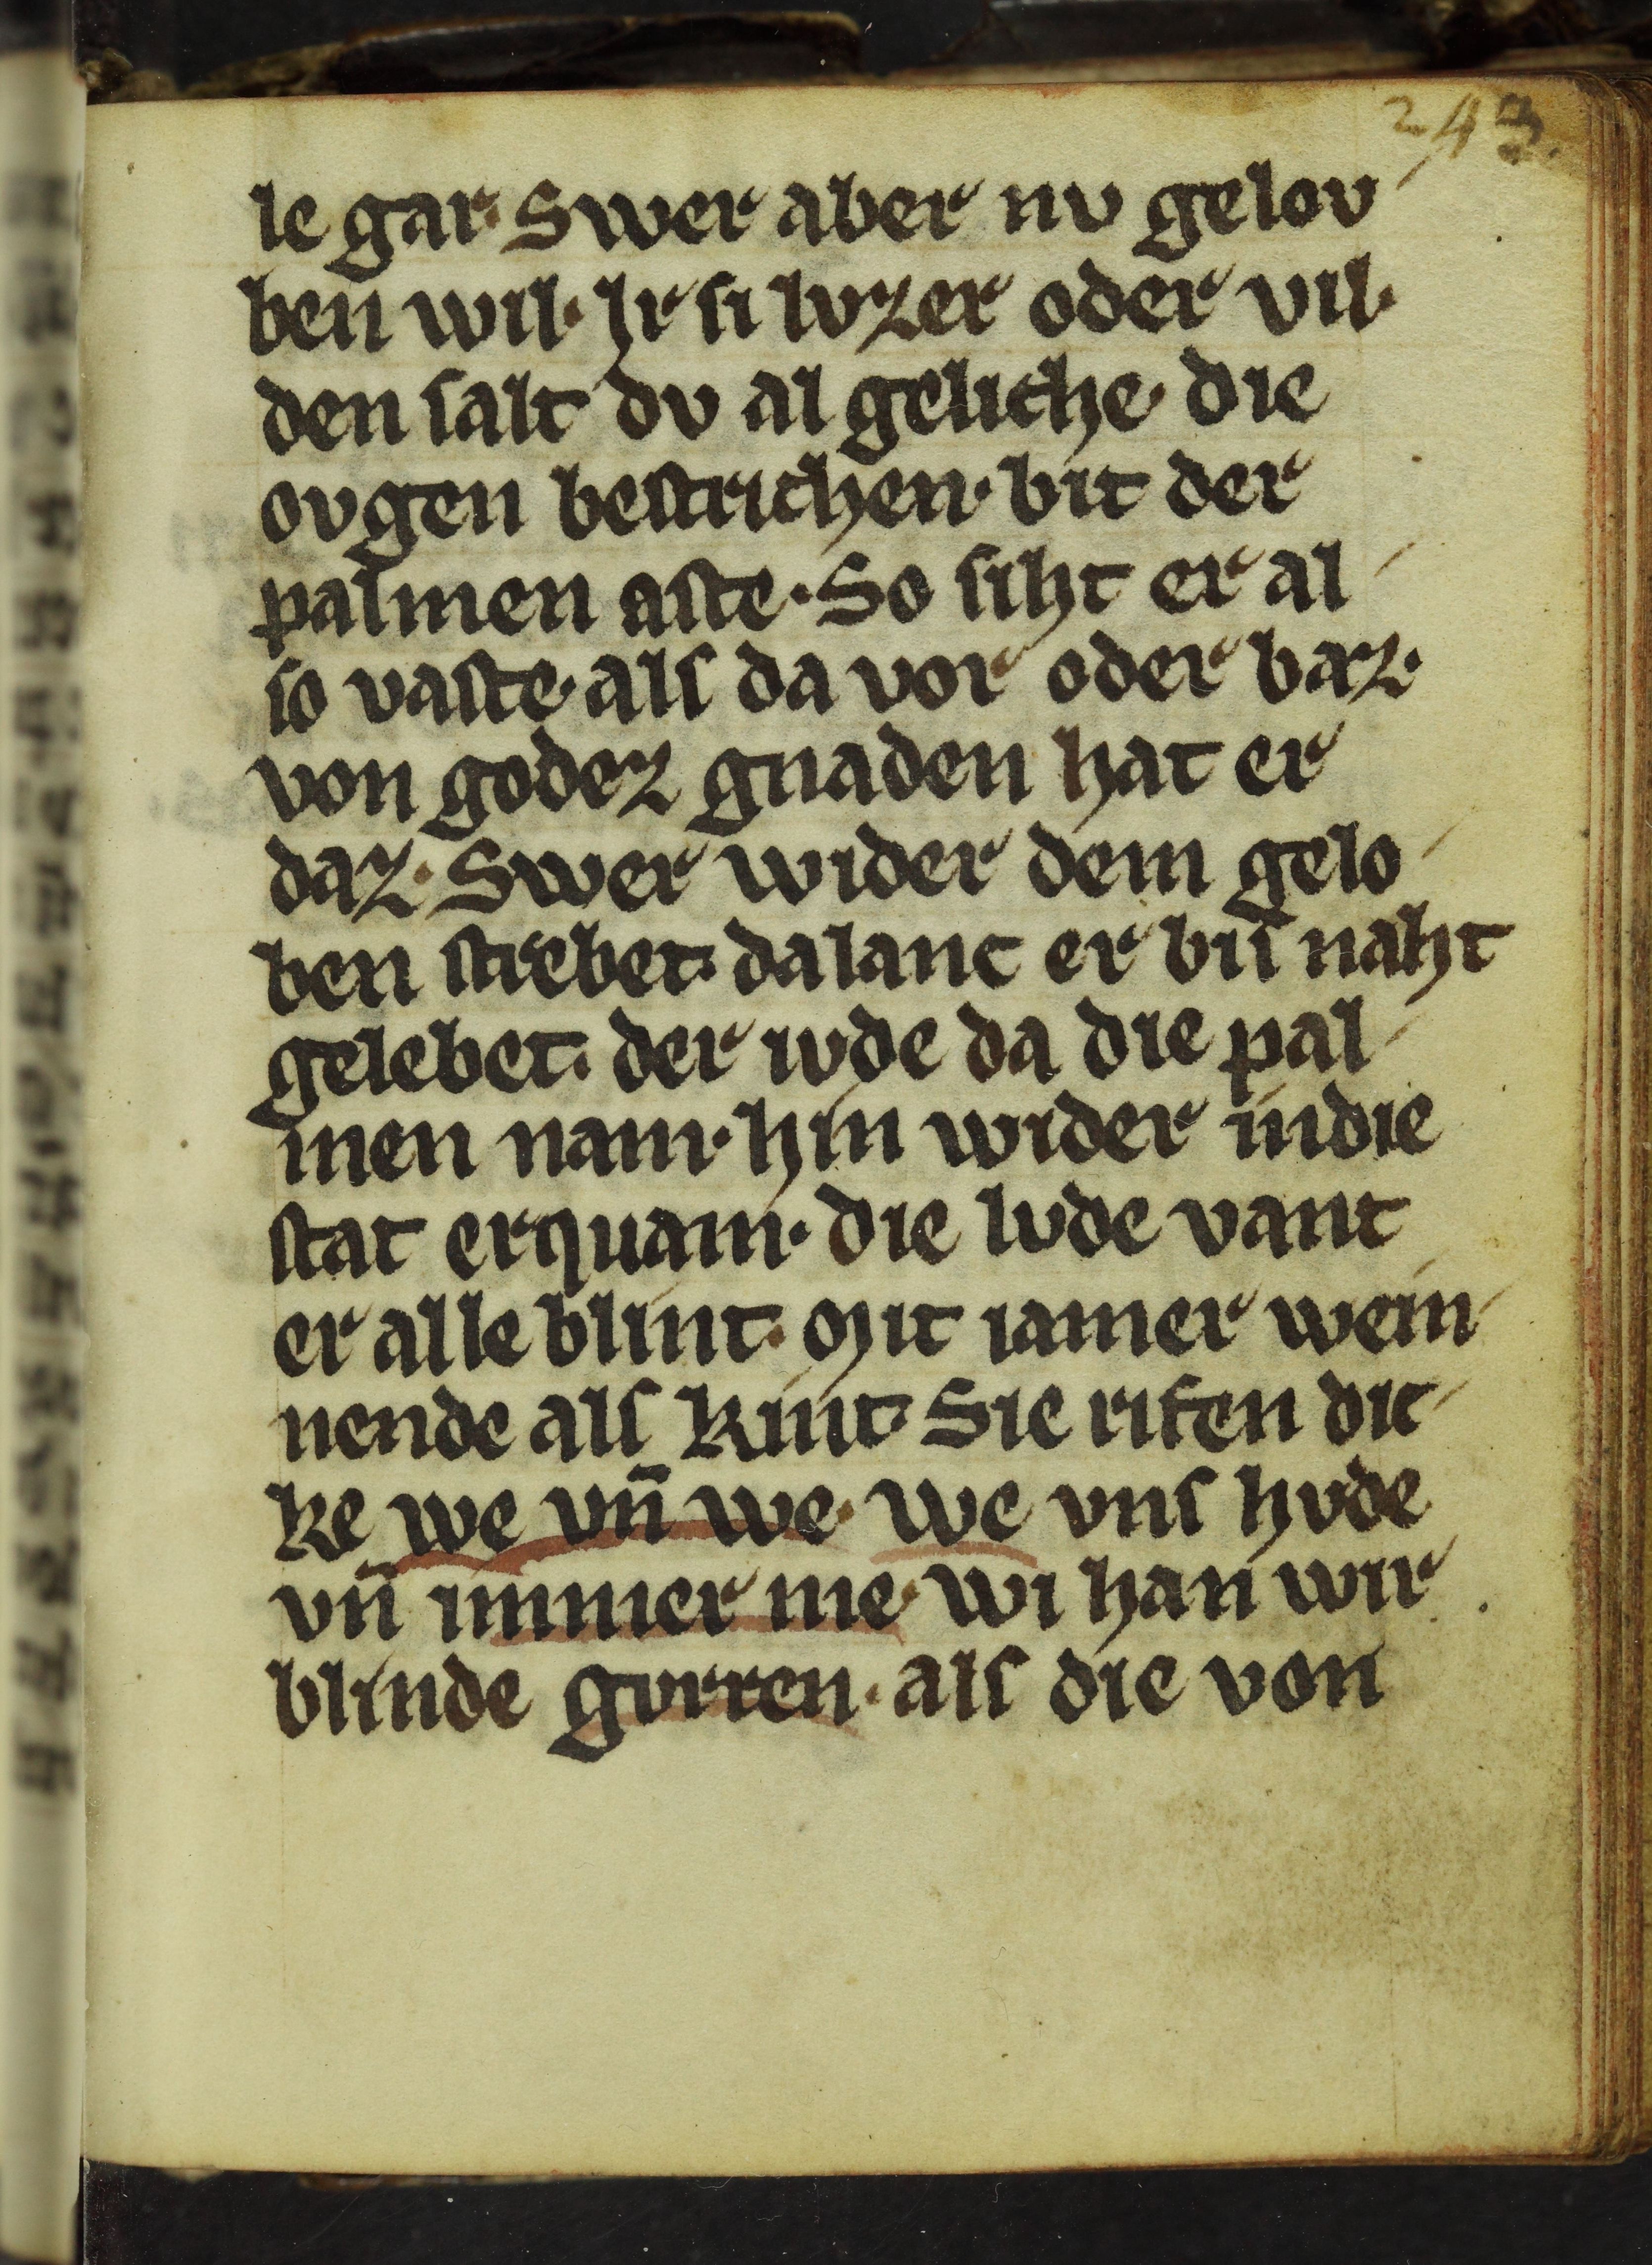 243.
le gar· Swer aber nv gelov
ben wil· Jr si lvzer oder vil·
den salt dv al geliche· die
ovgen bestrichen· bit der
palmen aste· So siht er al
so vaste· als da vor oder baz·
von godez gnaden hat er
daz· Swer wider dem gelo
ben strebet· dalanc er bu̅ naht
gelebet· der ivde da die pal
men nam· hin wider indie
stat erquam· die lvde vant
er alle blint· Mit iamer wein
nende als kint· Sie rifen dic
ke we vn̄ we· we vns hvde
vn̄ immer me· Wi han wir
blinde gvrren· als die von